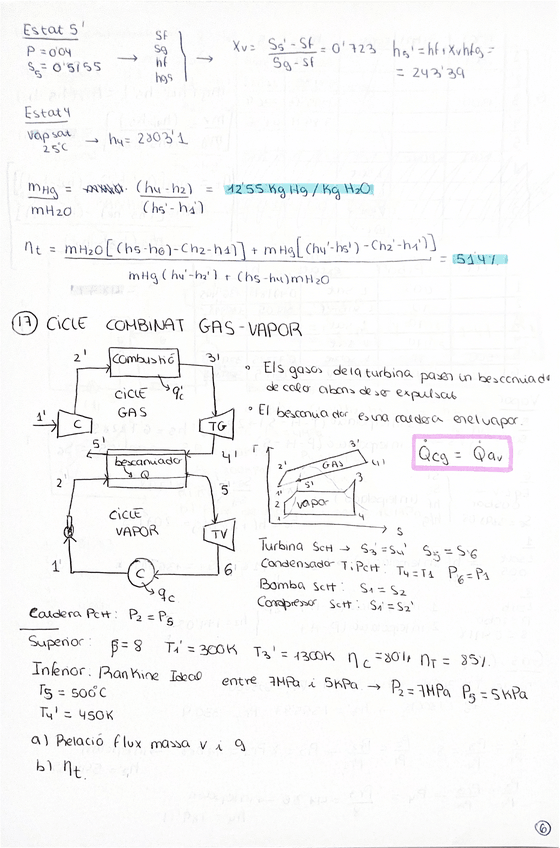 Estat 5'
P = 0'04
S5 = 0'5155
→ Sf Sg hf hgs → Xv = S5' - Sf / Sg - Sf = 0'723 h5' = hf + Xv hfg =
= 243'39
Estat 4
vap sat 25ºC → h4 = 2803'1
mHg / mH2O = (h4 - h2) / (h5' - h1') = 12'55 Kg Hg / Kg H2O
ηt = mH2O [(h5-h6) - (h2-h1)] + mHg [(h4'-h5') - (h2'-h1')] / mHg (h4'-h2') + (h5-h4) mH2O = 51'4%
17 CICLE COMBINAT GAS-VAPOR
2' Combustió 3'
q'c
CICLE GAS
1' C TG
5' 4'
bescanviador Q
2' 5
CICLE VAPOR
TV
1' C 6
qc
• Els gasos de la turbina pasen un bescanviador
de calor abans de ser expulsats
• El bescanviador es una caldera en el vapor.
T 3' 2' GAS 4' 1' 5' 3 2 vapor 1 4 S
Q̇cg = Q̇av
Turbina SCH → S3' = S4' S5 = S6
Condensador T i PCH: T4 = T1 P6 = P1
Bomba SCH: S1 = S2
Compressor SCH: S1' = S2'
Caldera PCH: P2 = P5
Superior: β = 8 T1' = 300K T3' = 1300K ηC = 80% ηT = 85%
Inferior. Rankine Ideal entre 7MPa i 5KPa → P2 = 7MPa P5 = 5KPa
T5 = 500ºC
T4' = 450K
a) Relació flux massa v i g
b) ηt
6